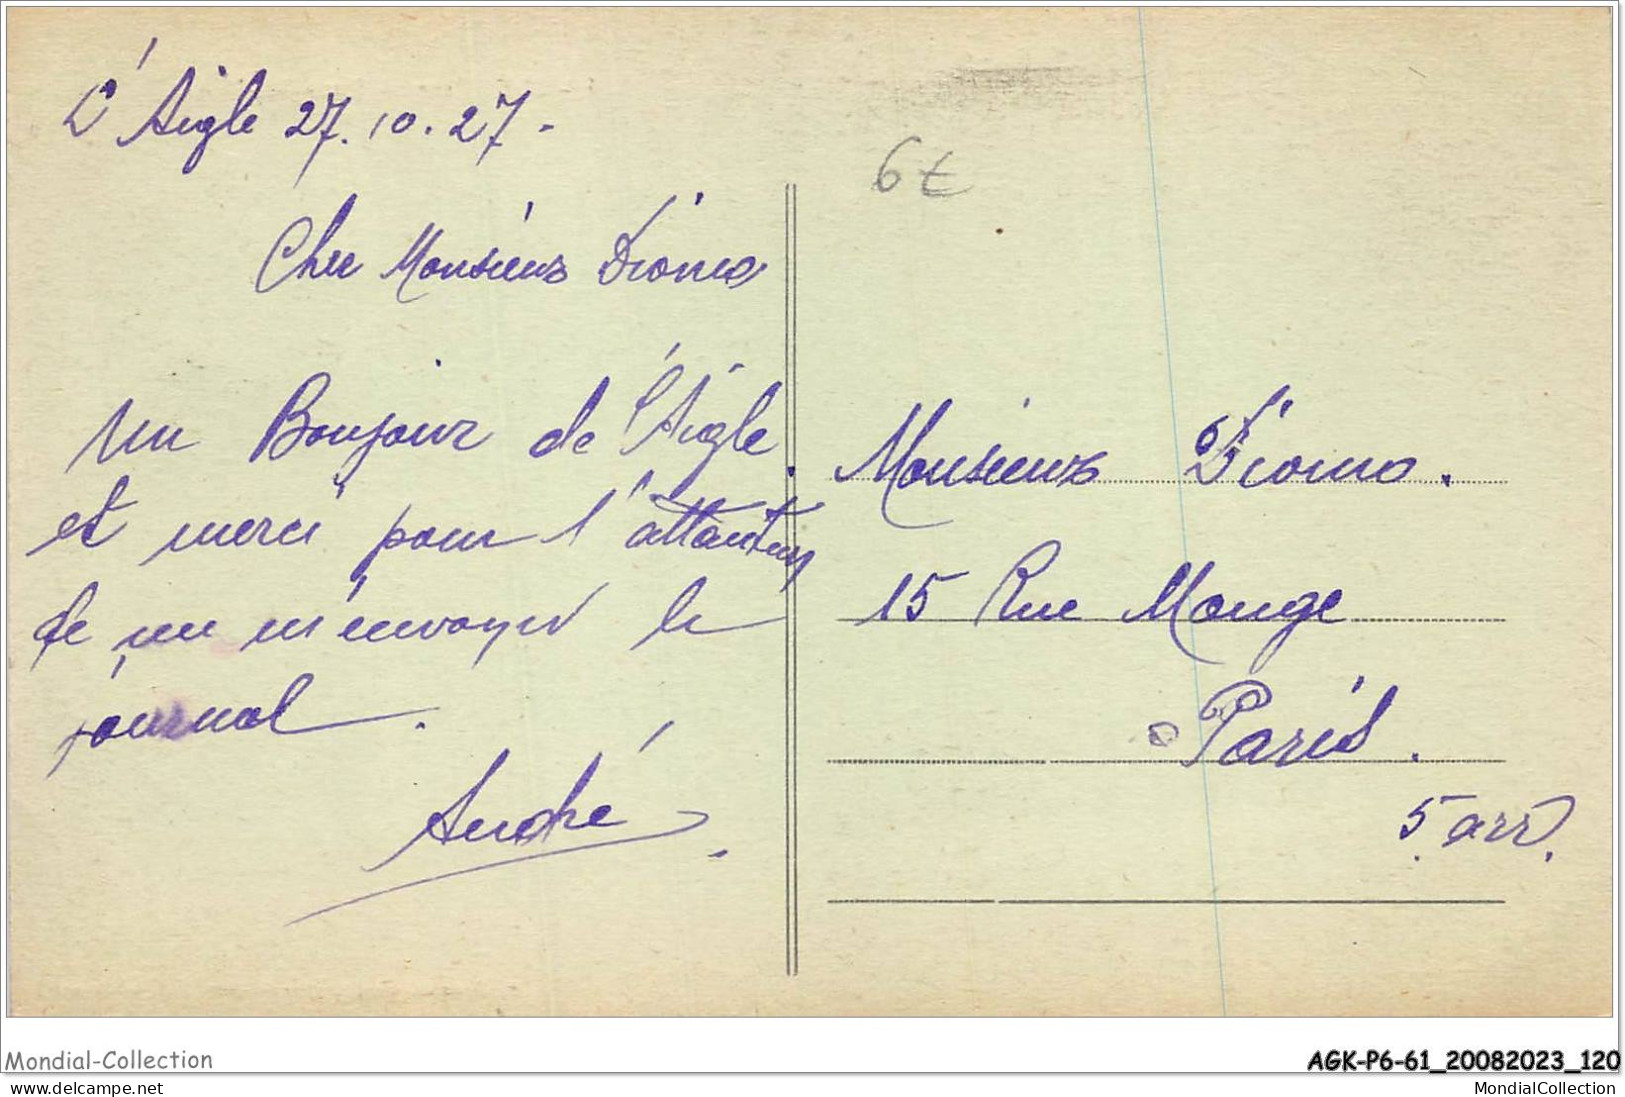 L'Aigle 27.10.27-
Cher Monsieur Dioma
Un Bonjour de l'Aigle.
et merci pour l'attention
de me m'envoyer le
journal.
André
6€
Monsieur Dioma.
15 Rue Monge
Paris.
5 arr.
Mondial-Collection
AGK-P6-61_20082023_120
https://www.delcampe.net
MondialCollection